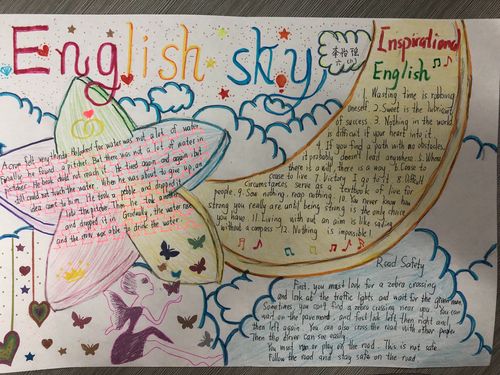 English sky
李怡强
六(4)
Inspirational
English
1. Wasting time is robbing
oneself 2. Sweet is the lubricant
of success. 3. Nothing in the world
is difficult if your heart into it.
4. If you find a path with no obstacles,
it probably doesn't lead anywhere. 5. Where
there is a will, there is a way. 6. Cease to
cease to live 7. Victory I go to! 8. Difficult
circumstances serve as a textbook of live for
people. 9. Sow nothing, reap nothing. 10. You never know how
strong you really are until being strong is the only choice
you have. 11. Living with out an aim is like sailing
without a compass 12. Nothing is impossible!
A crow felt very thirsty. He looked for water
Finally, he found a pitcher. But there was not a lot of water in
the pitcher. His beak could not reach it. He tried again and again, but
still could not touch the water. When he was about to give up, an
idea came to him. He took a pebble and dropped it
into the pitcher. Then he took another
and dropped it in. Gradually, the water rose
and the crow was able to drink the water.
Road Safety
First, you must look for a zebra crossing
and look at the traffic lights and wait for the green man.
Sometimes, you can't find a zebra crossing near you. You can
wait on the pavement, and first look left, then right and
then left again. You can also cross the road with other people.
Then the driver can see easily.
You must not play on the road. This is not safe.
Follow the road and stay safe on the road.